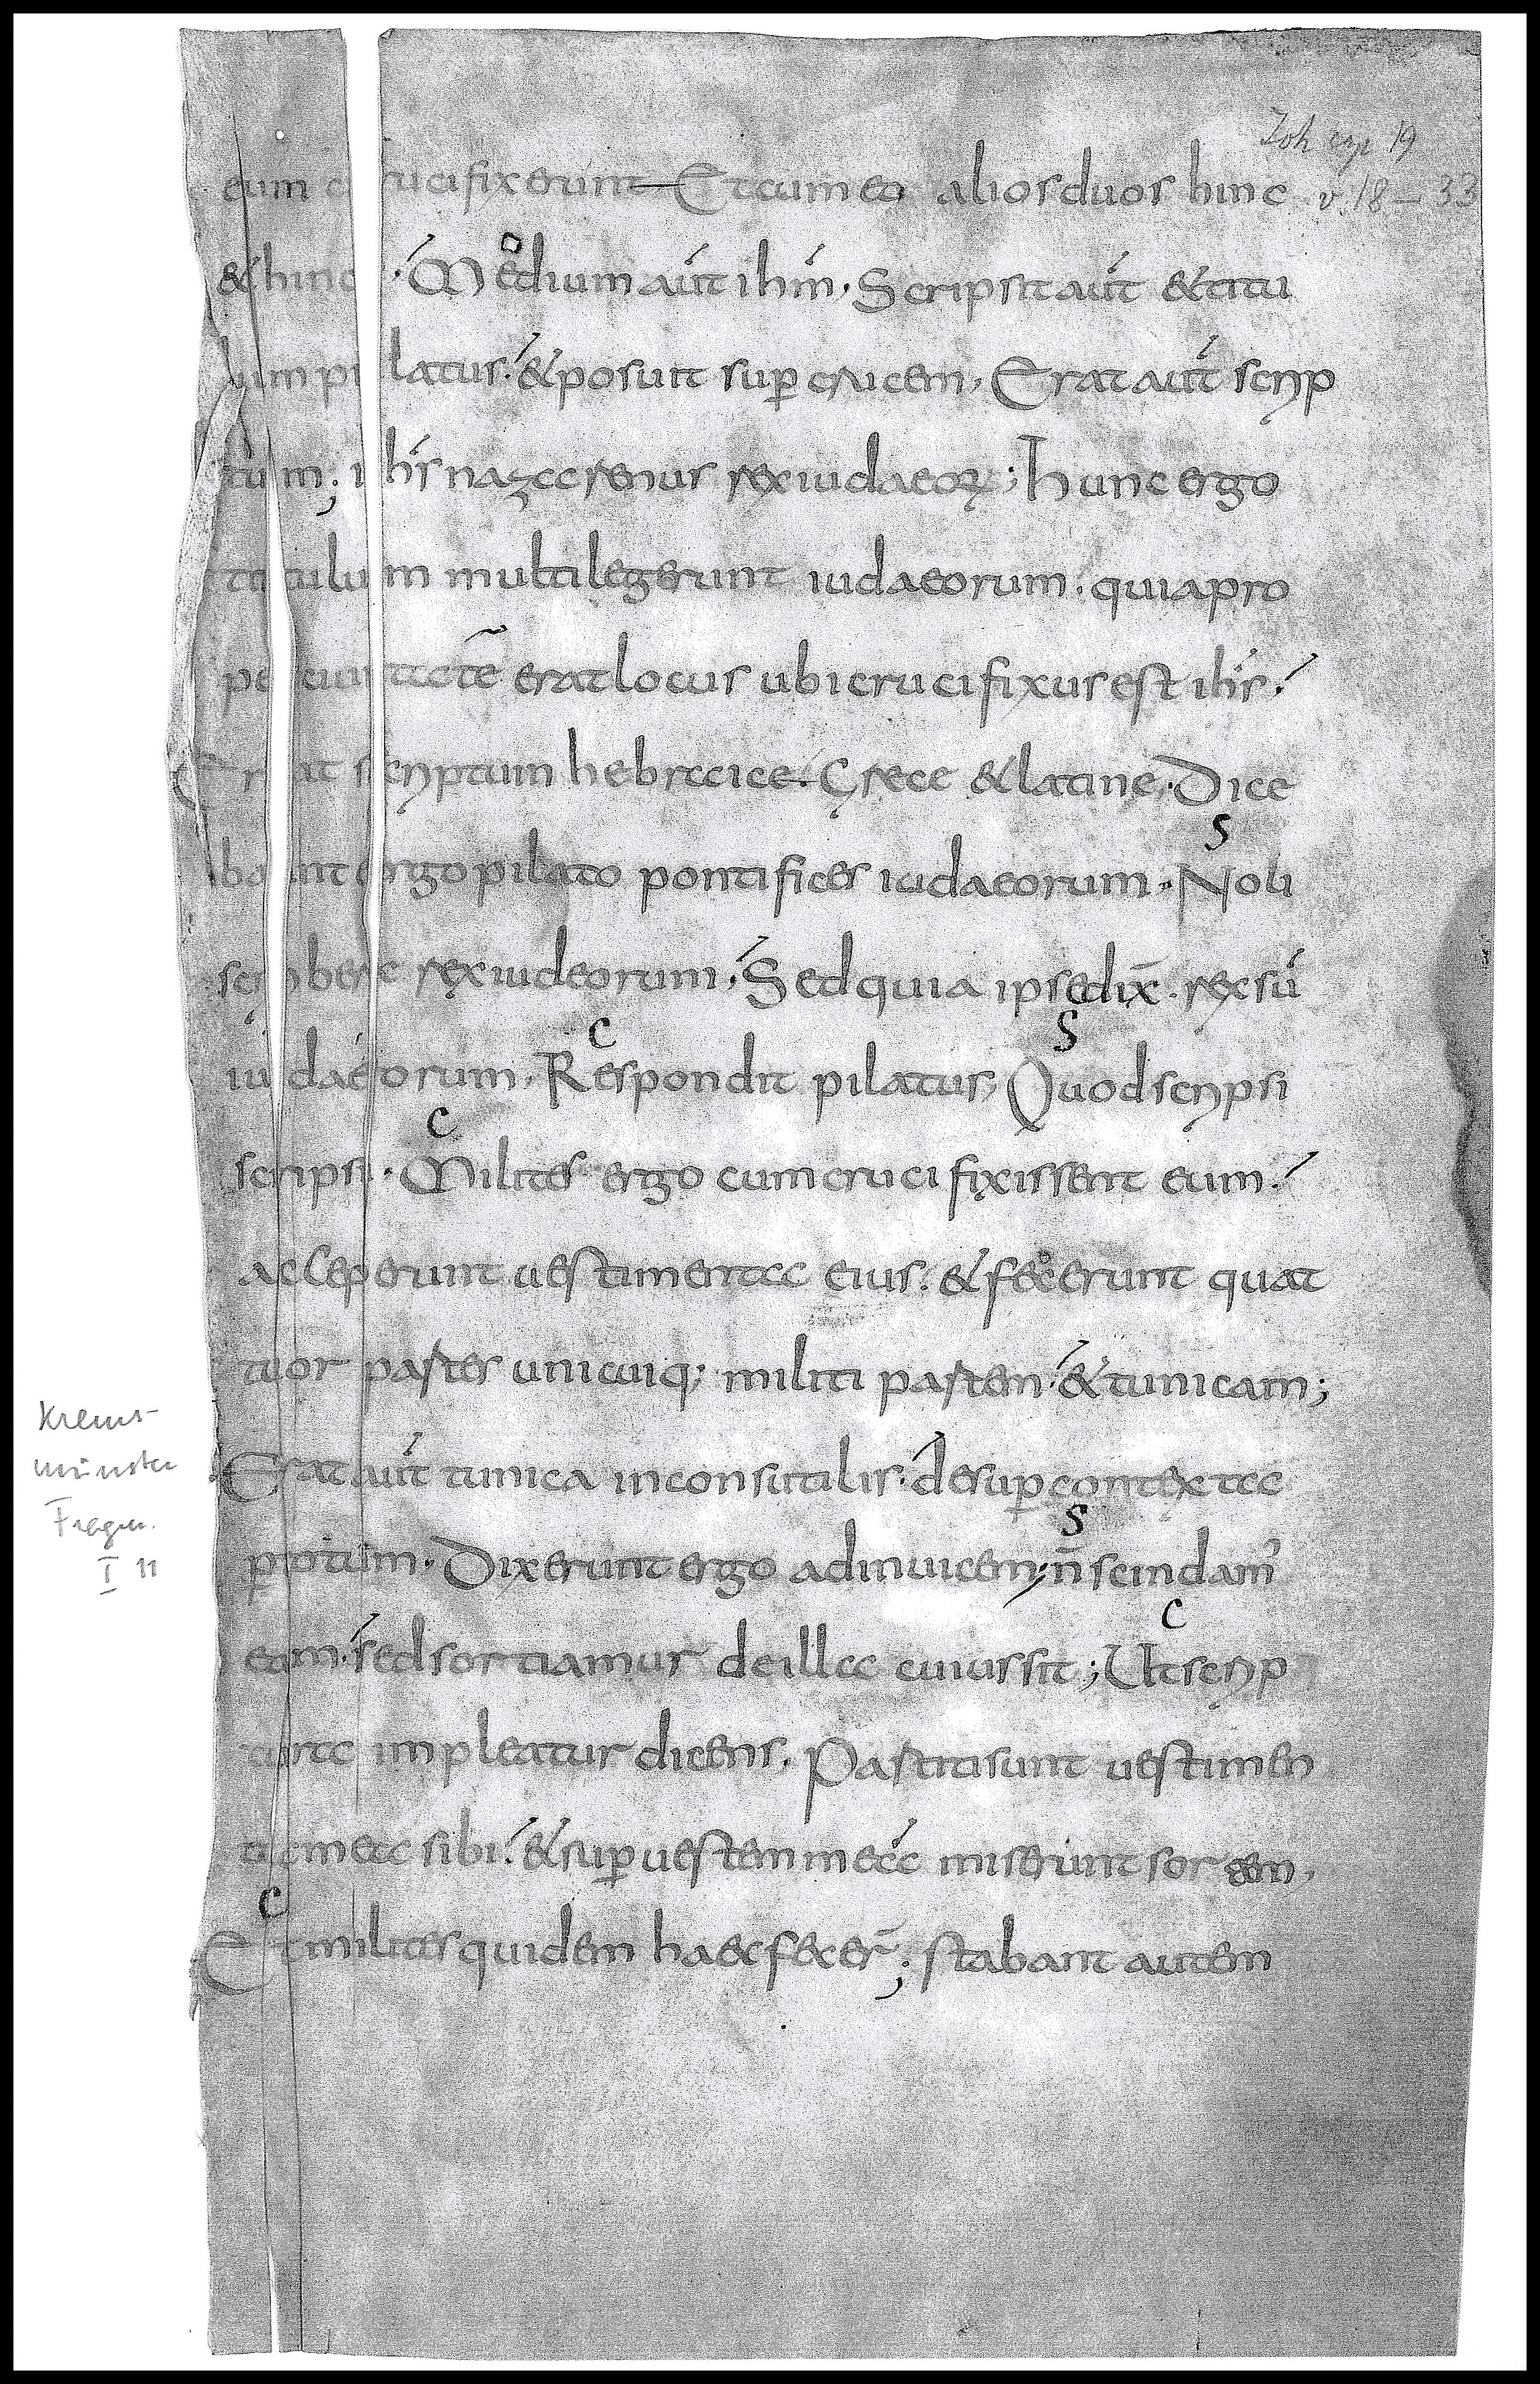 Joh cap 19
v. 18 – 33
eum crucifixerunt Et cum eo alios duos hinc
& hinc. Medium aut̄ ihm̄. Scripsit aut̄ & titu
lum pilatus. & posuit sup̄ crucem, Erat aut̄ scrip
tum; ihs̄ nazarenus rex iudaeoꝝ; hunc ergo
titulum multi legerunt iudaeorum. quia pro
pe ciuitatē erat locus ubi crucifixus est ihs̄.
Erat scriptum hebraice. Grece & latine. Dice
S
bant ergo pilato pontifices iudaeorum. Noli
scribere rex iudeorum. Sed quia ipse dix̄. rex sū
C S
iudaeorum. Respondit pilatus, Quod scripsi
C
scripsi. Milites ergo cum crucifixissent eum.
acceperunt uestimenta eius. & fecerunt quat
tuor partes unicuiq; militi partem. & tunicam;
Erat aut̄ tunica inconsutilis. desup̄ contexta
S
p̄ totum. Dixerunt ergo adinuicem; n̄ scindam᾽
C
eam. sed sortiamur de illa cuius sit; Ut scrip
tura impleatur dicens. Partiti sunt uestimen
ta mea sibi. & sup̄ uestem meā miserunt sortem,
C
Et milites quidem haec fecer̄; stabant autem
Krems-
münster
Fragm.
I 11